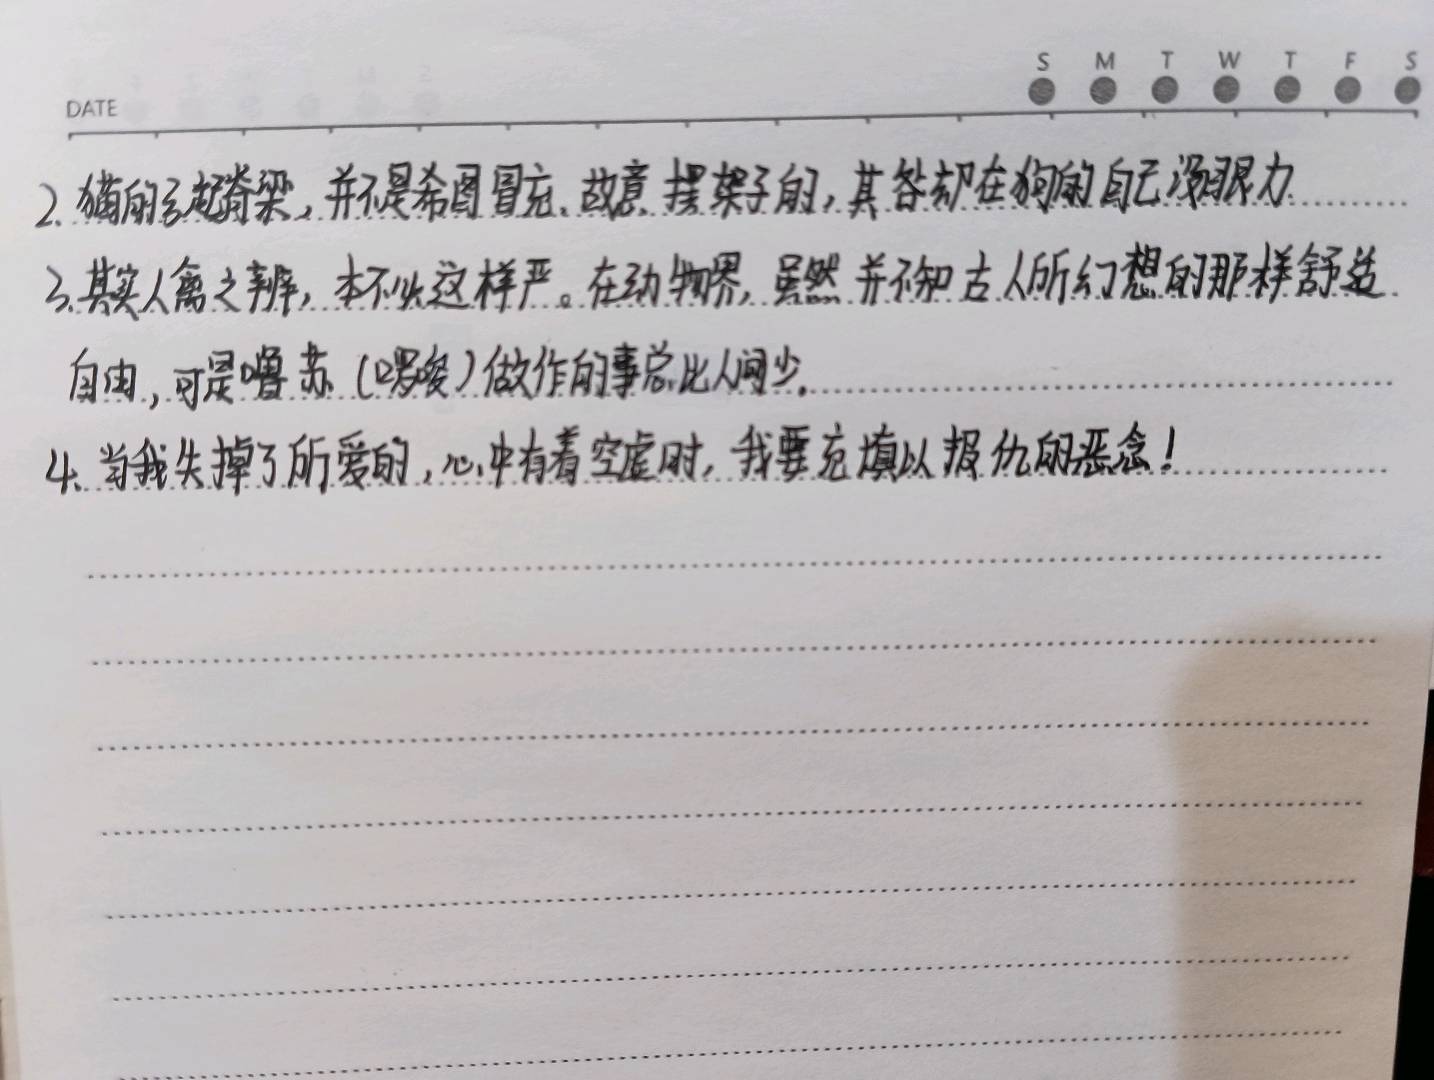 S M T W T F S
DATE
2. 猫的弓起脊梁，并不是希图冒充、故意摆架子的，其咎却在狗的自己没眼力
3. 其实人禽之辨，本不必这样严。在动物界，虽然并不如古人所幻想的那样舒适
自由，可是噜苏（啰唆）做作的事总比人间少。
4. 当我失掉了所爱的，心中有着空虚时，我要充填以报仇的恶念！